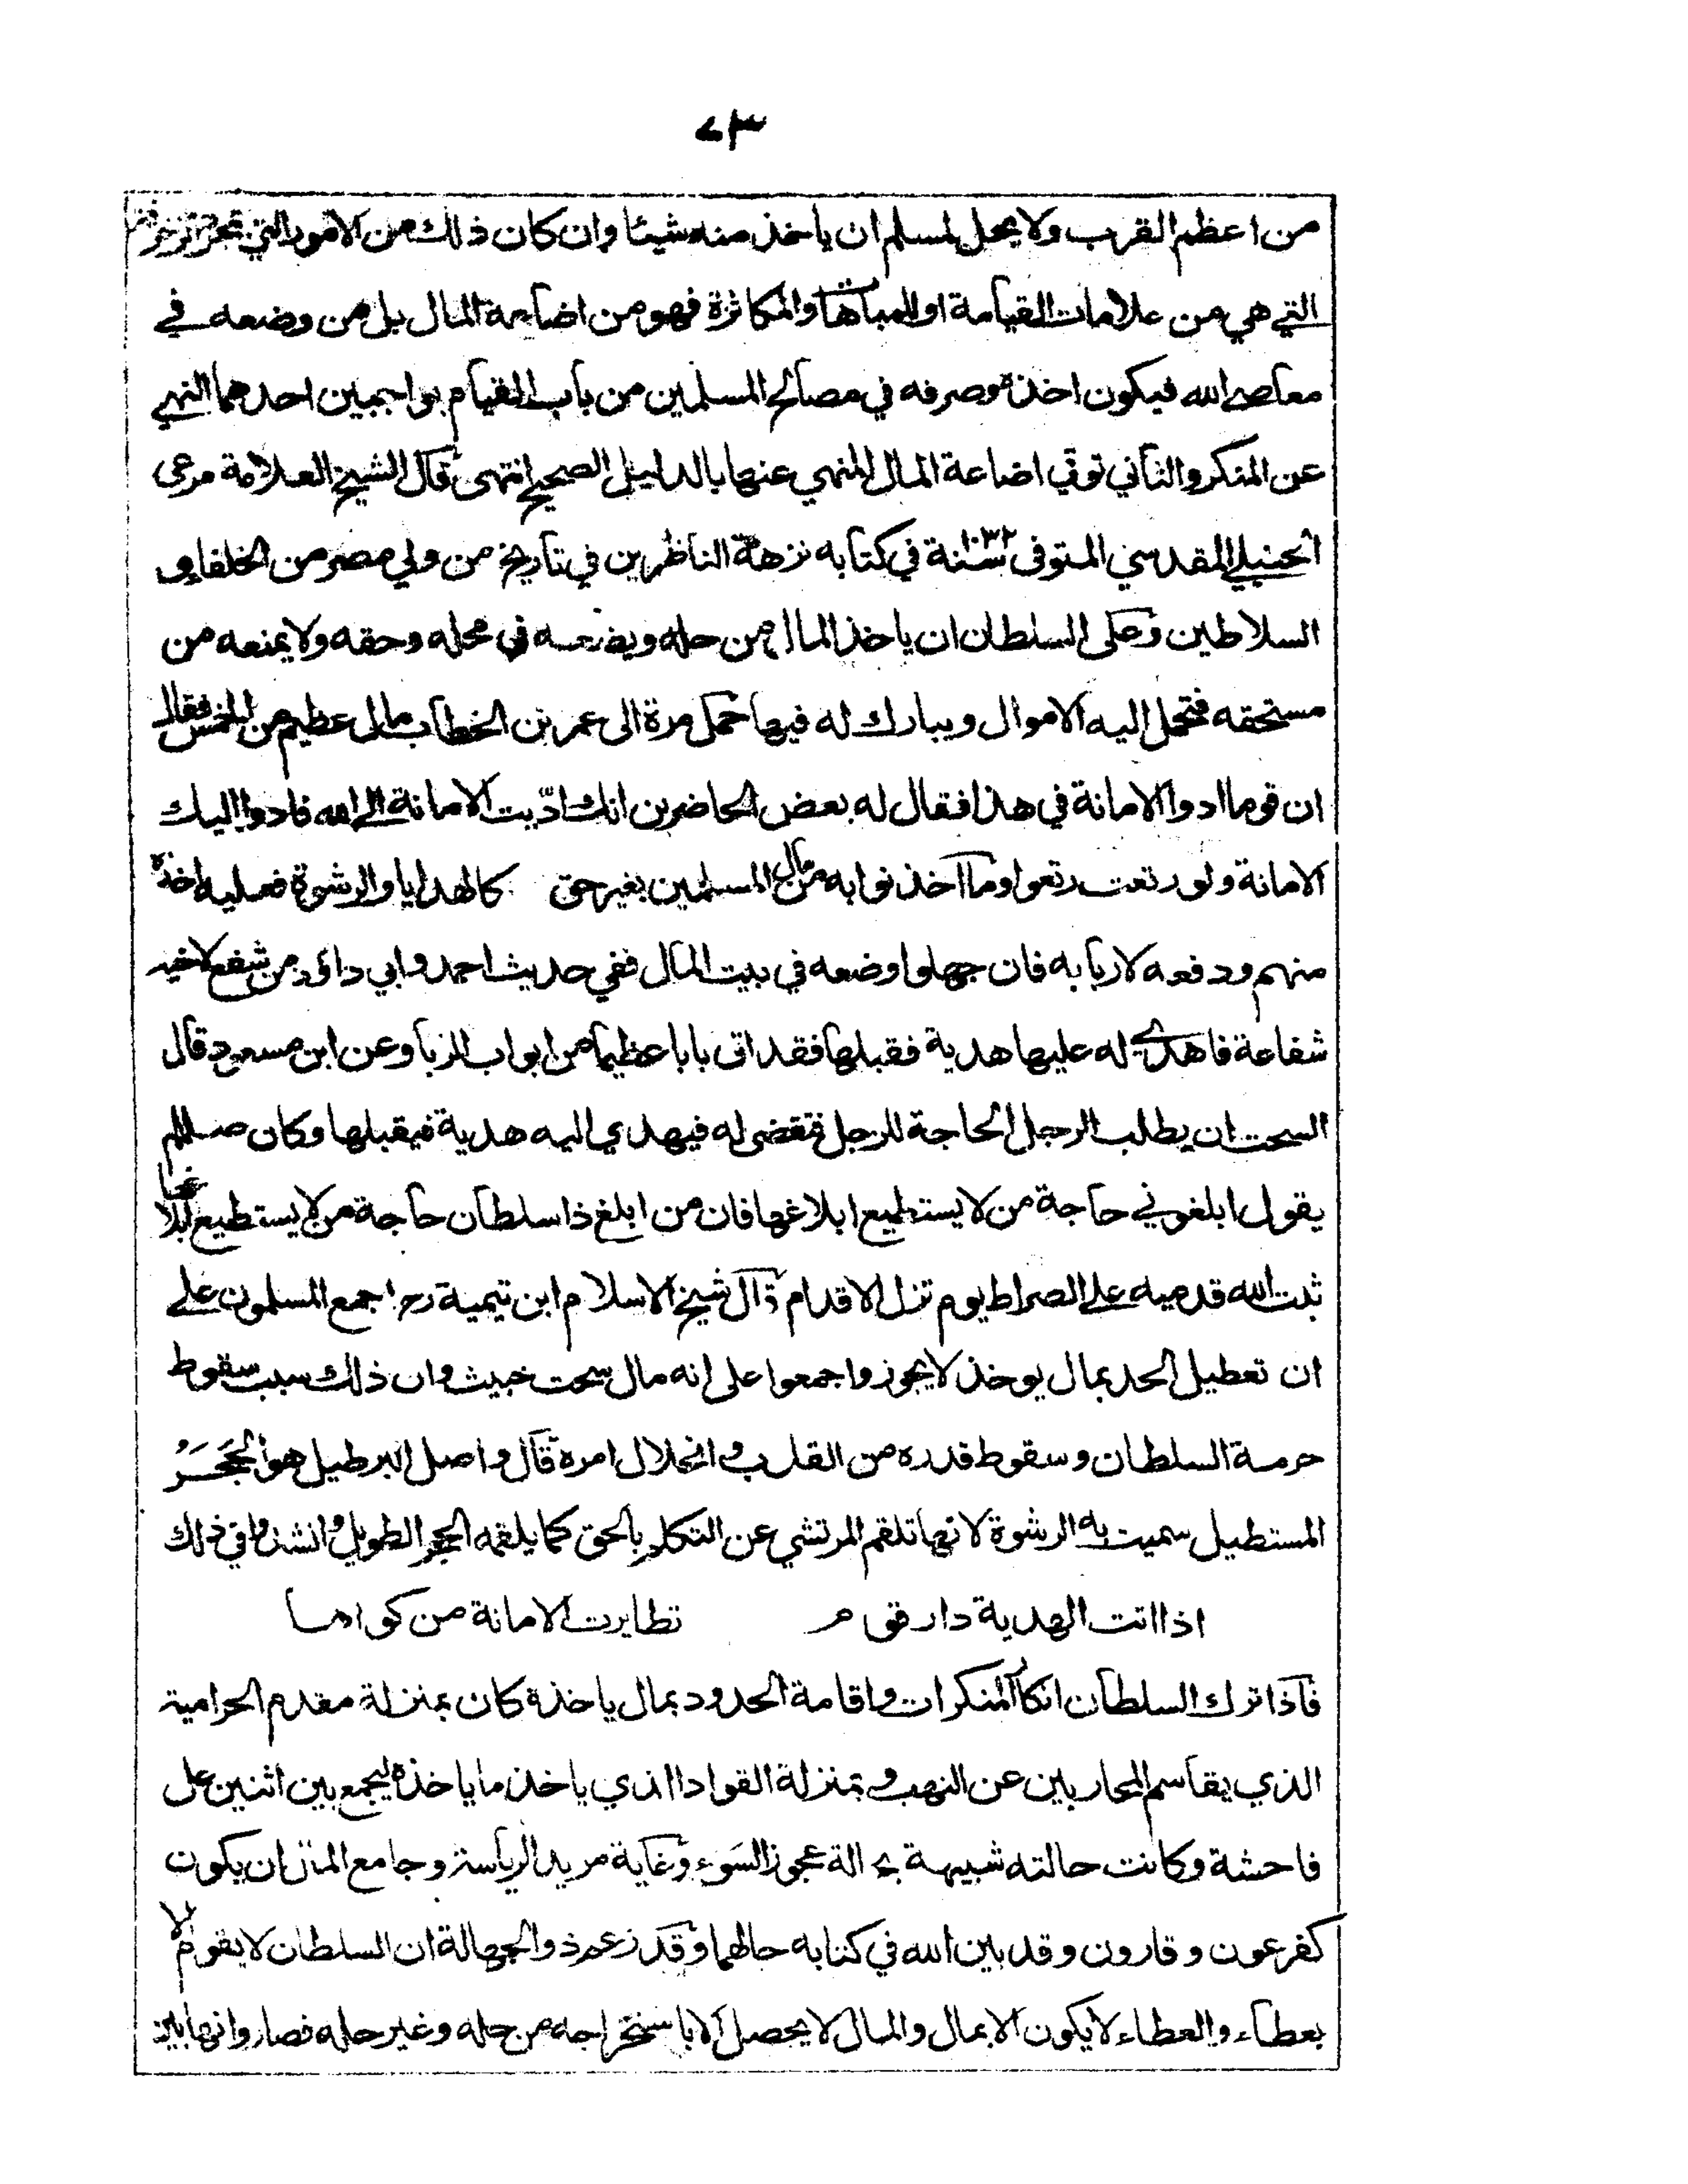 ٧٣
من اعظم القرب ولا يحل لمسلم ان ياخذ منه شيئا وان كان ذلك من الامور التي
التي هي من علامات القيامة او للمباهاة والمكاثرة فهو من اضاعة المال بل من وضعه في
معاصي الله فيكون اخذه وصرفه في مصالح المسلمين من باب القيام بواجبين احدهما النهي
عن المنكر والثاني توقي اضاعة المال المنهي عنها بالدليل الصحيح انتهى قال الشيخ العلامة مرعي
الحنبلي المقدسي المتوفى سنة ١٠٣٢ في كتابه نزهة الناظرين في تاريخ من ولي مصر من الخلفا و
السلاطين وعلى السلطان ان ياخذ المال من حله ويضعه في محله وحقه ولا يمنعه من
مستحقه فتحمل اليه الاموال ويبارك له فيها حمل مرة الى عمر بن الخطاب مال عظيم من الخمس فقال
ان قوما ادوا الامانة في هذا فقال له بعض الحاضرين انك ادّيت الامانة الى الله فادوا اليك
الامانة ولو رتعت رتعوا وما اخذ نوابه من مال المسلمين بغير حق كالهدايا والرشوة فعليه اخذه
منهم ودفعه لاربابه فان جهلوا وضعه في بيت المال ففي حديث احمد وابي داؤد من شفع لاخيه
شفاعة فاهدى له عليها هدية فقبلها فقد اتى بابا عظيما من ابواب الربا وعن ابن مسعود قال
السحت ان يطلب الرجل الحاجة للرجل فتقضى له فيهدي اليه هدية فيقبلها وكان صللم
يقول ابلغوني حاجة من لا يستطيع ابلاغها فان من ابلغ ذا سلطان حاجة من لا يستطيع ابلاغها
ثبت الله قدميه على الصراط يوم تزل الاقدام قال شيخ الاسلام ابن تيمية رح اجمع المسلمون على
ان تعطيل الحد بمال يوخذ لا يجوز واجمعوا على انه مال سحت خبيث وان ذلك سبب سقوط
حرمة السلطان وسقوط قدره من القلب وانحلال امره قال واصل البرطيل هو الحَجَرُ
المستطيل سميت به الرشوة لانها تلقم المرتشي عن التكلم بالحق كما يلقمه الحجر الطويل وانشدوا في ذلك
اذا اتت الهدية دار قوم تطايرت الامانة من كواها
فاذا ترك السلطان انكار المنكرات واقامة الحدود بمال ياخذه كان بمنزلة مقدم الحرامية
الذي يقاسم المحاربين عن النهب وبمنزلة القواد الذي ياخذ ما ياخذه ليجمع بين اثنين على
فاحشة وكانت حالته شبيهة بحالة عجوز السَوء وغاية مريد الرياسة وجامع المال ان يكون
كفرعون وقارون وقد بين الله في كتابه حالهما وقد زعم ذو الجهالة ان السلطان لا يقوم الا
بعطاء والعطاء لا يكون الا بمال والمال لا يحصل الا باستخراجه من حله وغير حله فصاروا نهابين